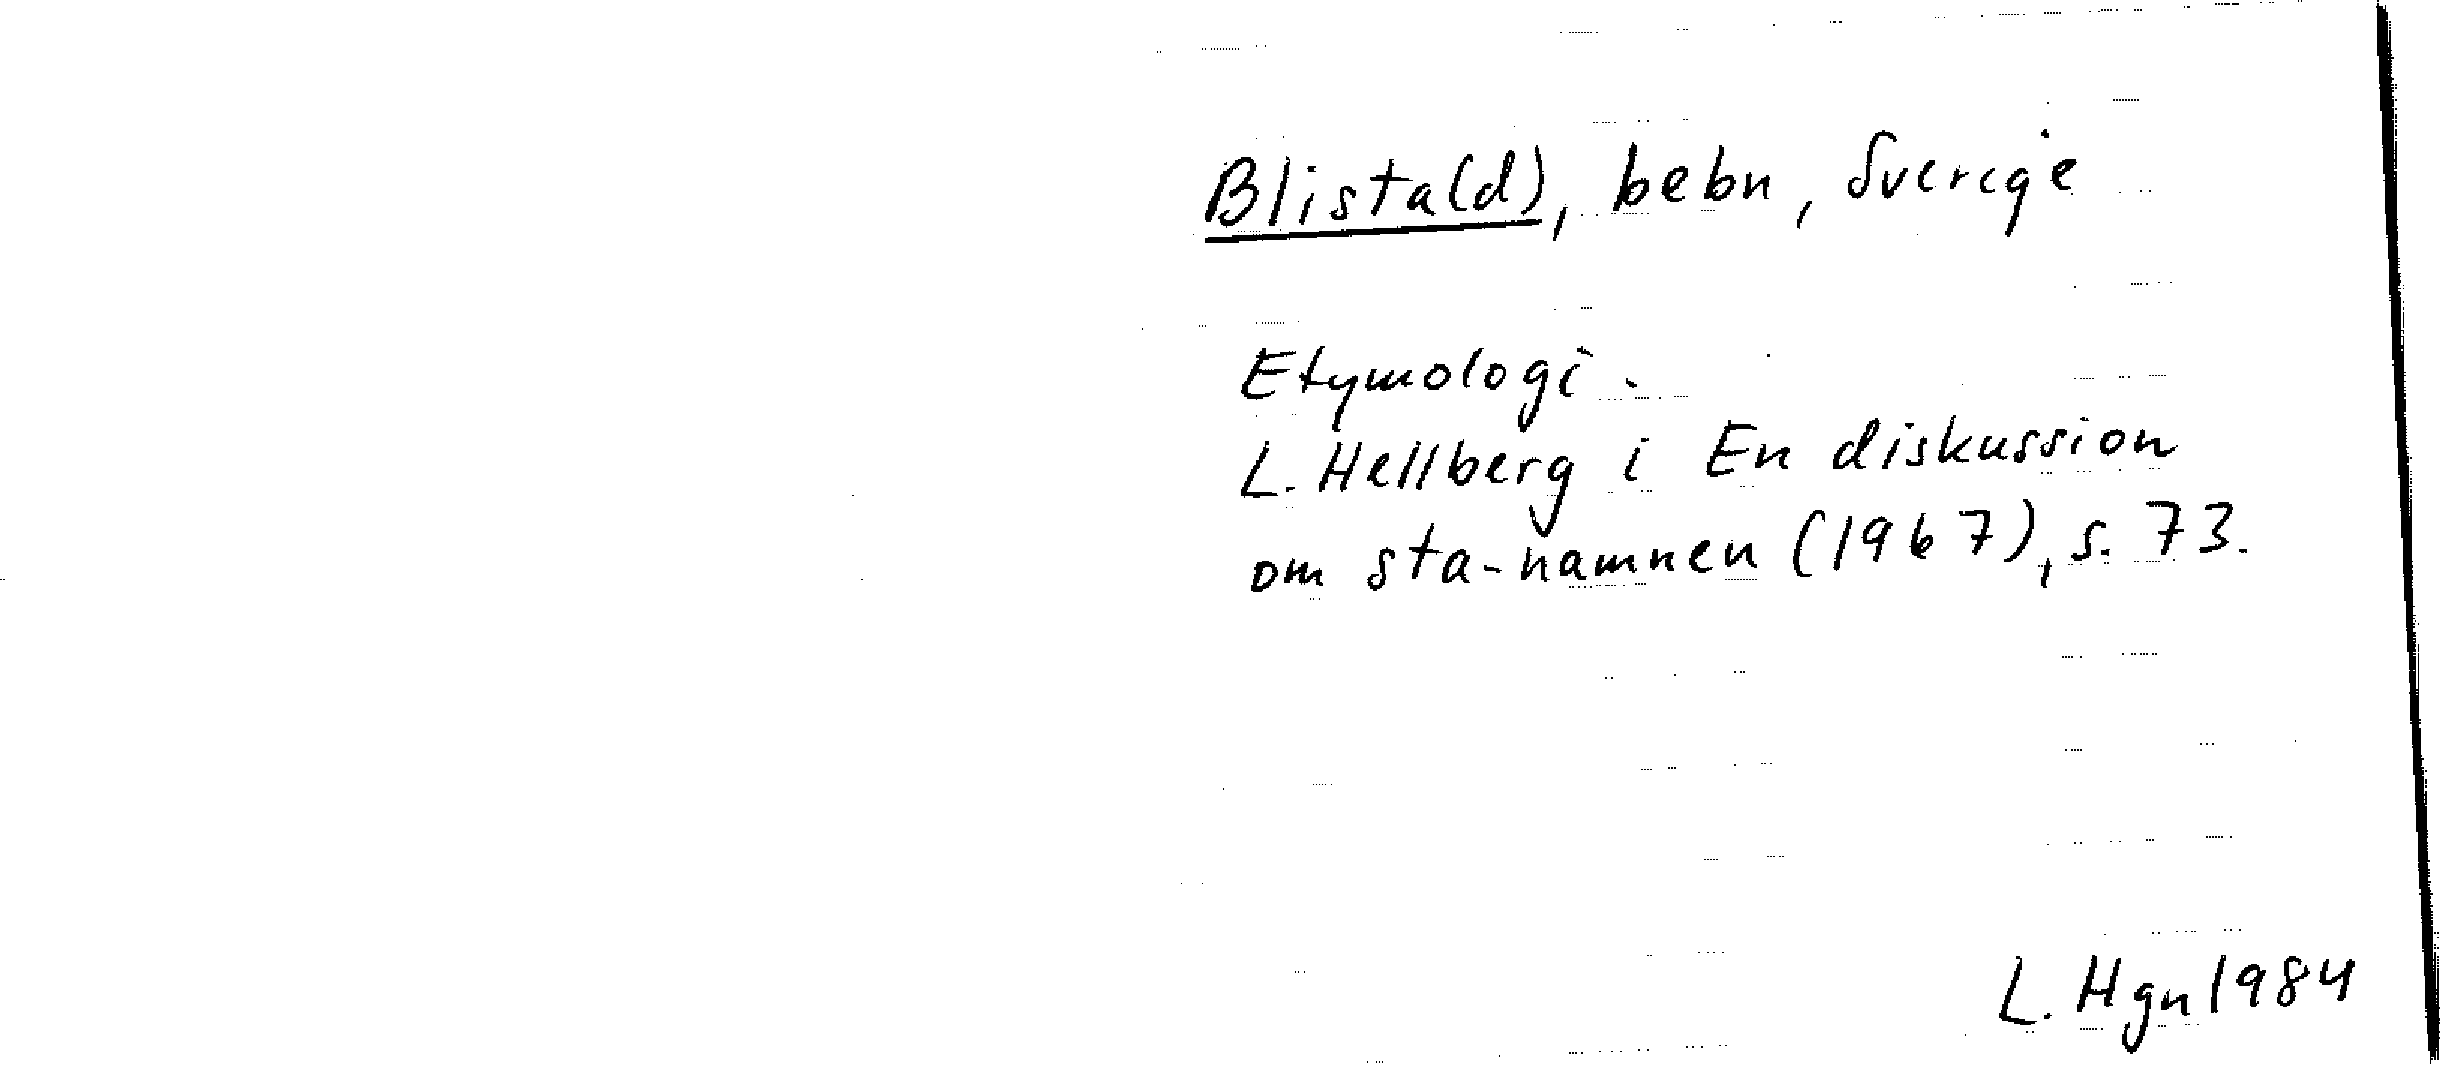 Blista(d), bebn, Sverige
Etymologi.
L. Hellberg i En diskussion
om sta-namnen (1967), s. 73.
L. Hgn 1984